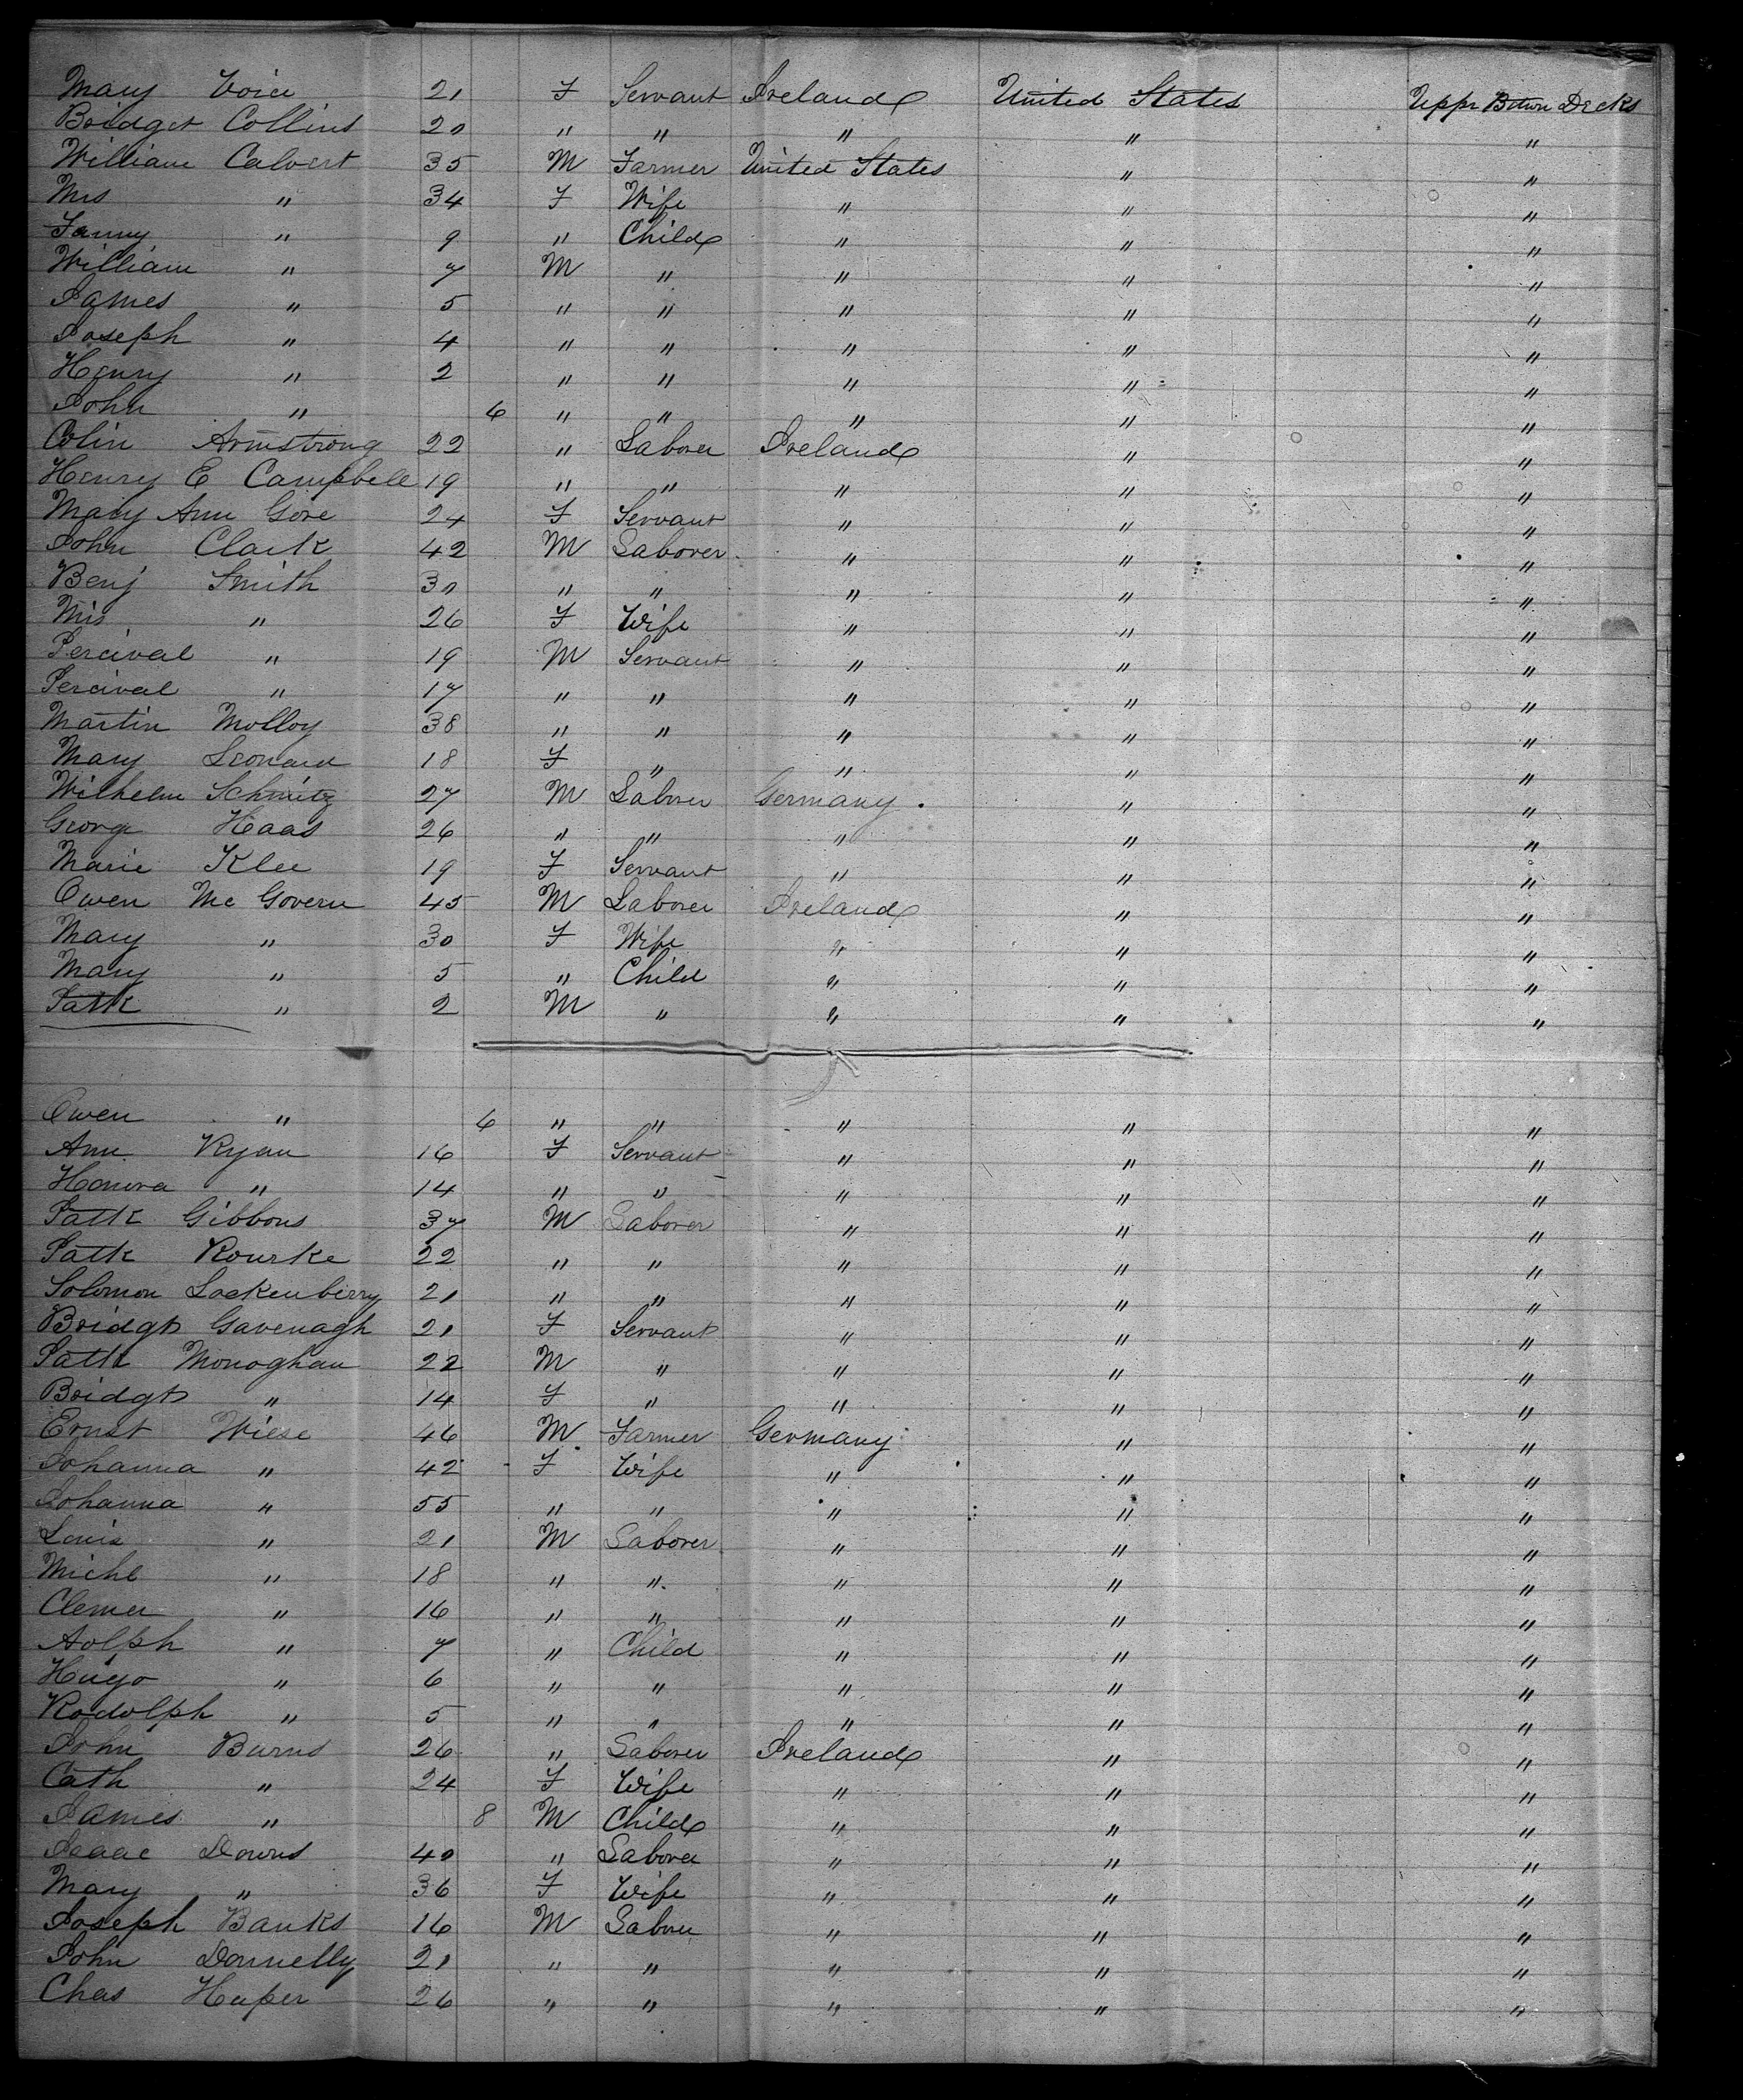 Mary Voice 21 F Servant Ireland United States Uppr Betwn Decks
Bridget Collins 20 " " " " "
William Calvert 35 M Farmer United States " "
Mrs " 34 F Wife " " "
Fanny " 9 " Child " " "
William " 7 M " " " "
James " 5 " " " " "
Joseph " 4 " " " " "
Henry " 2 " " " " "
John " 6 " " " " "
Colin Armstrong 22 " Laborer Ireland " "
Henry E Campbell 19 " " " " "
Mary Ann Gore 24 F Servant " " "
John Clark 42 M Laborer " " "
Benj Smith 30 " " " " "
Mrs " 26 F Wife " " "
Percival " 19 M Servant " " "
Percival " 17 " " " " "
Martin Molloy 38 " " " " "
Mary Leonard 18 F " " " "
Wilhelm Schmitz 27 M Laborer Germany " "
George Haas 26 " " " " "
Marie Klee 19 F Servant " " "
Owen Mc Govern 45 M Laborer Ireland " "
Mary " 30 F Wife " " "
Mary " 5 " Child " " "
Patk " 2 M " " " "
Owen " 6 " " " " "
Ann Ryan 16 F Servant " " "
Honora " 14 " " " " "
Patk Gibbons 37 M Laborer " " "
Patk Rourke 22 " " " " "
Solomon Lockenberry 21 " " " " "
Bridgt Gavenagh 21 F Servant " " "
Patk Monoghan 22 M " " " "
Bridgt " 14 F " " " "
Ernst Wiese 46 M Farmer Germany " "
Johanna " 42 F Wife " " "
Johanna " 55 " " " " "
Louis " 21 M Laborer " " "
Michl " 18 " " " " "
Clemer " 16 " " " " "
Adlph " 7 " Child " " "
Hugo " 6 " " " " "
Rodolph " 5 " " " " "
John Burns 26 " Laborer Ireland " "
Cath " 24 F Wife " " "
James " 8 M Child " " "
Isaac Downs 40 " Laborer " " "
Mary " 36 F Wife " " "
Joseph Banks 16 M Laborer " " "
John Donnelly 21 " " " " "
Chas Haper 26 " " " " "